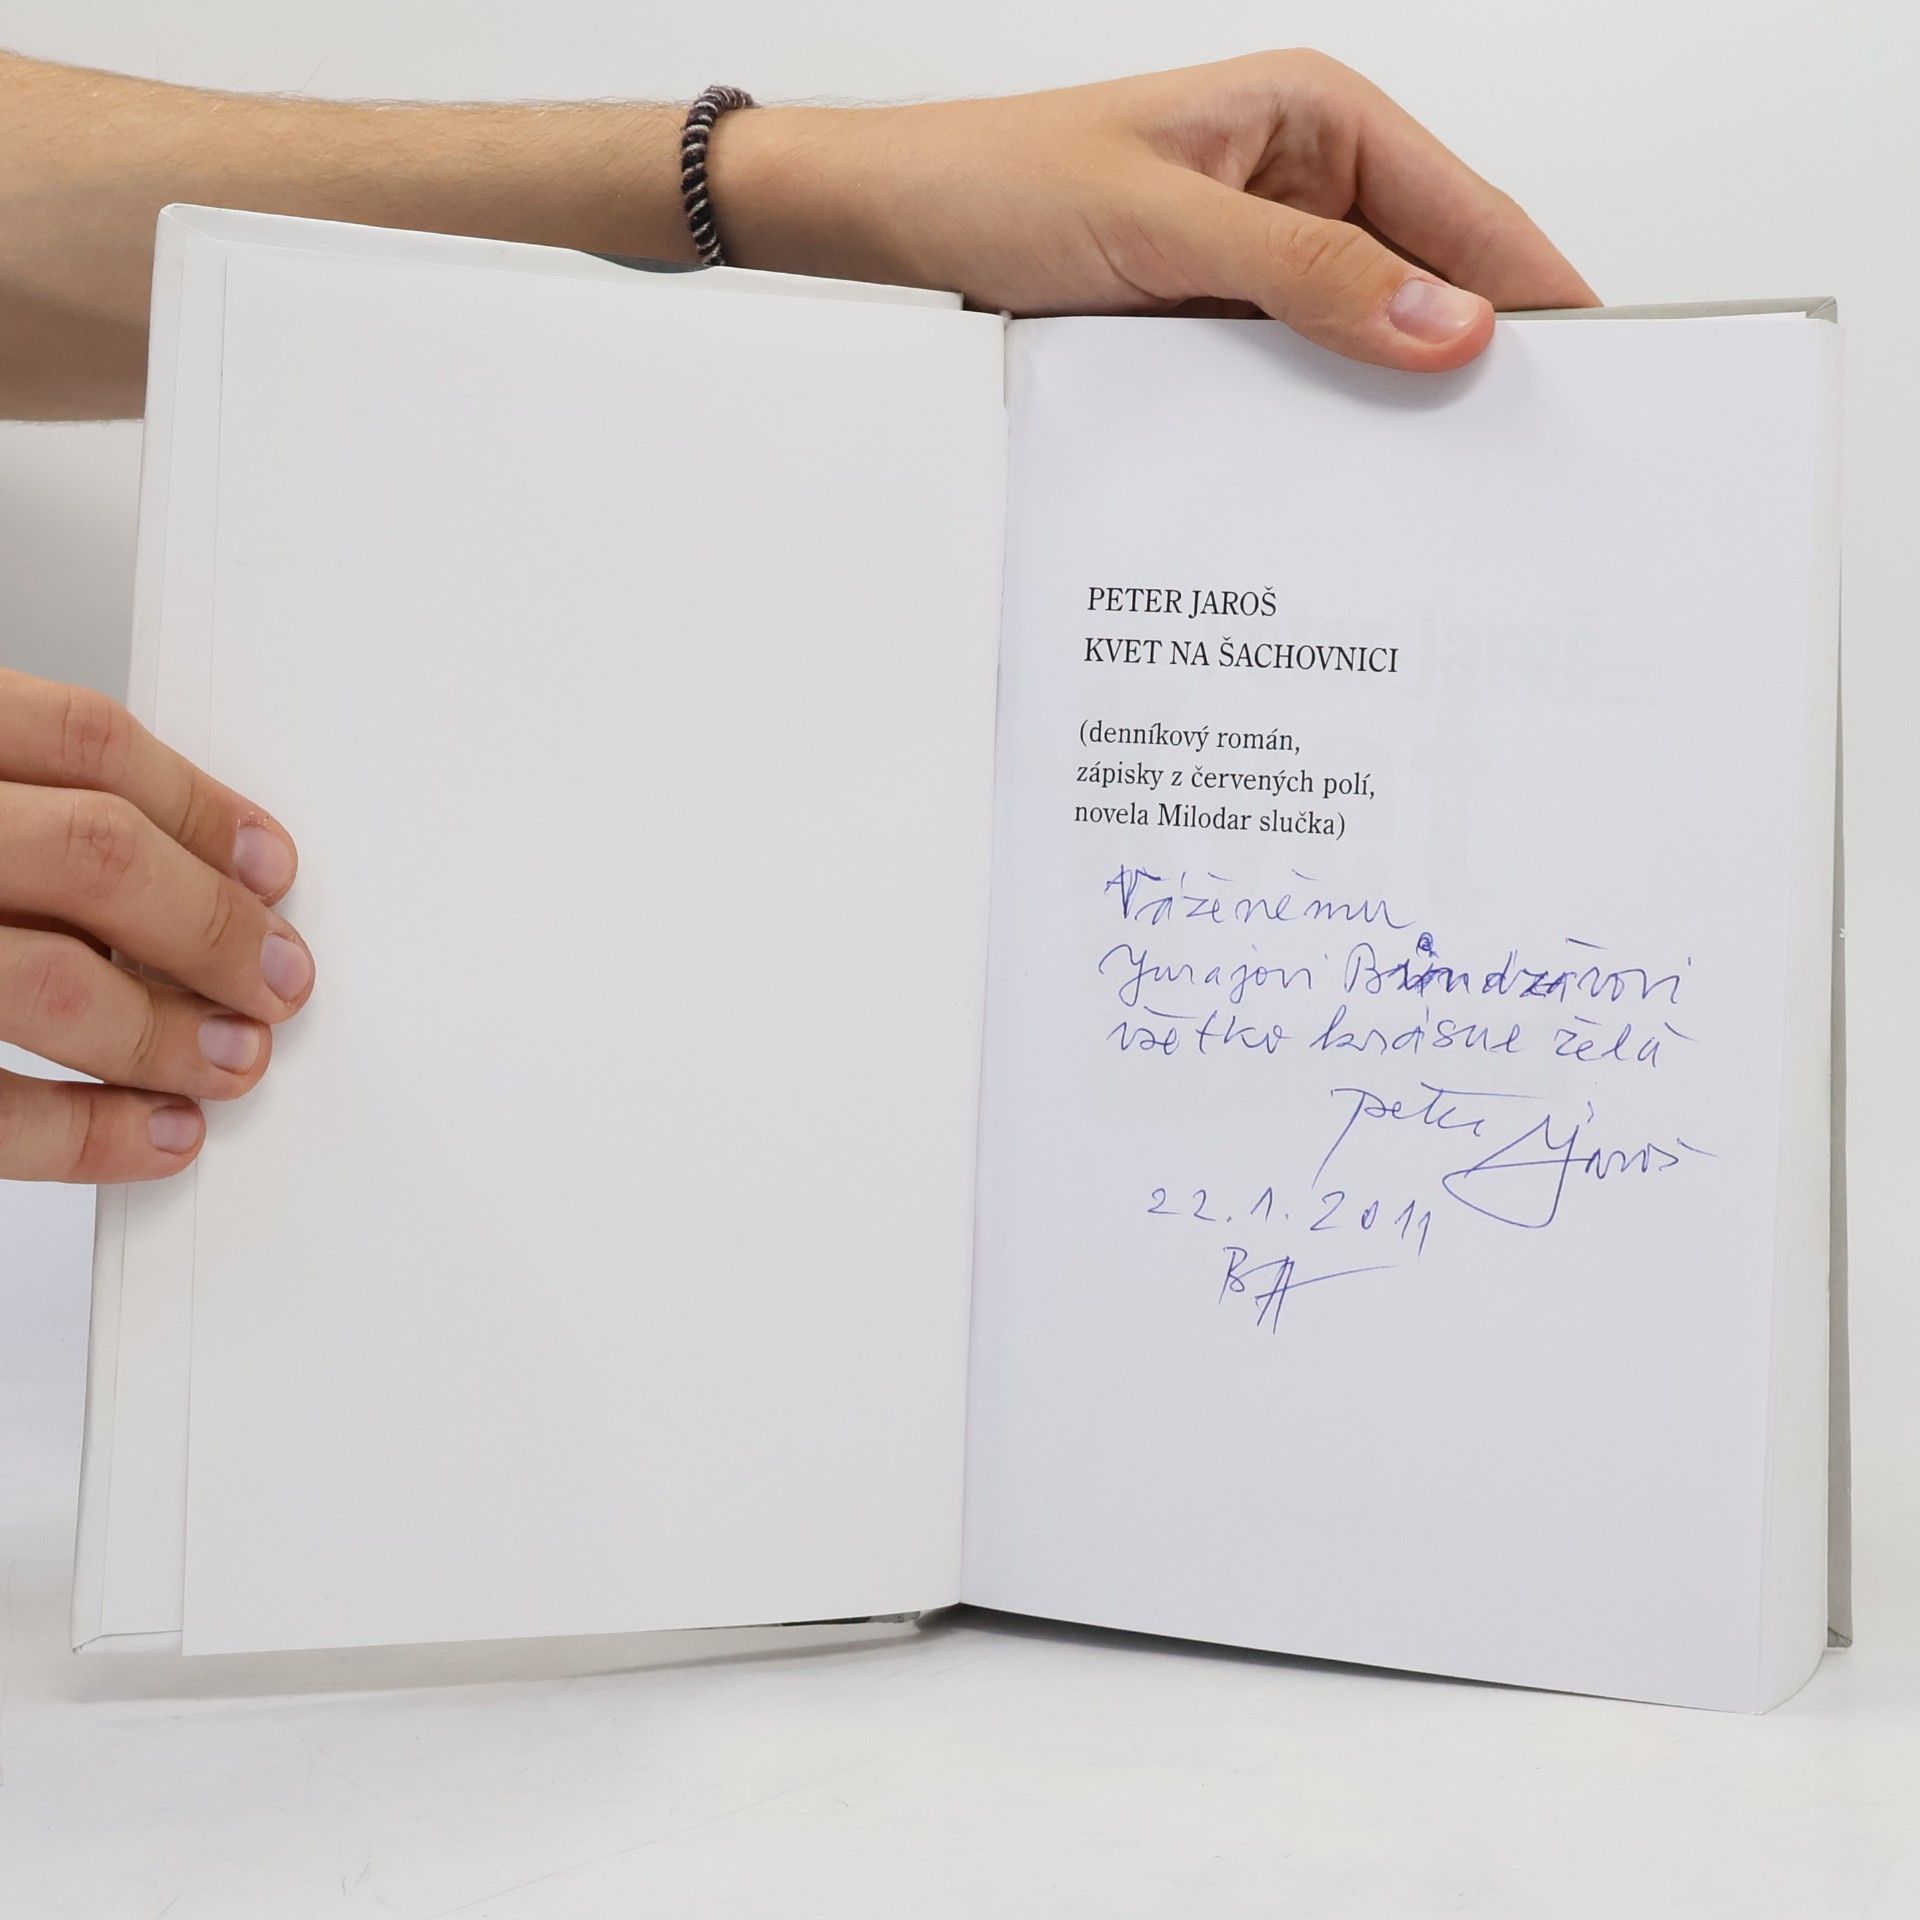 PETER JAROŠ
KVET NA ŠACHOVNICI
(denníkový román,
zápisky z červených polí,
novela Milodar slučka)
Váženému
Jurajovi
všetko krásne želá
Peter Jaroš
22.1.2011
BA